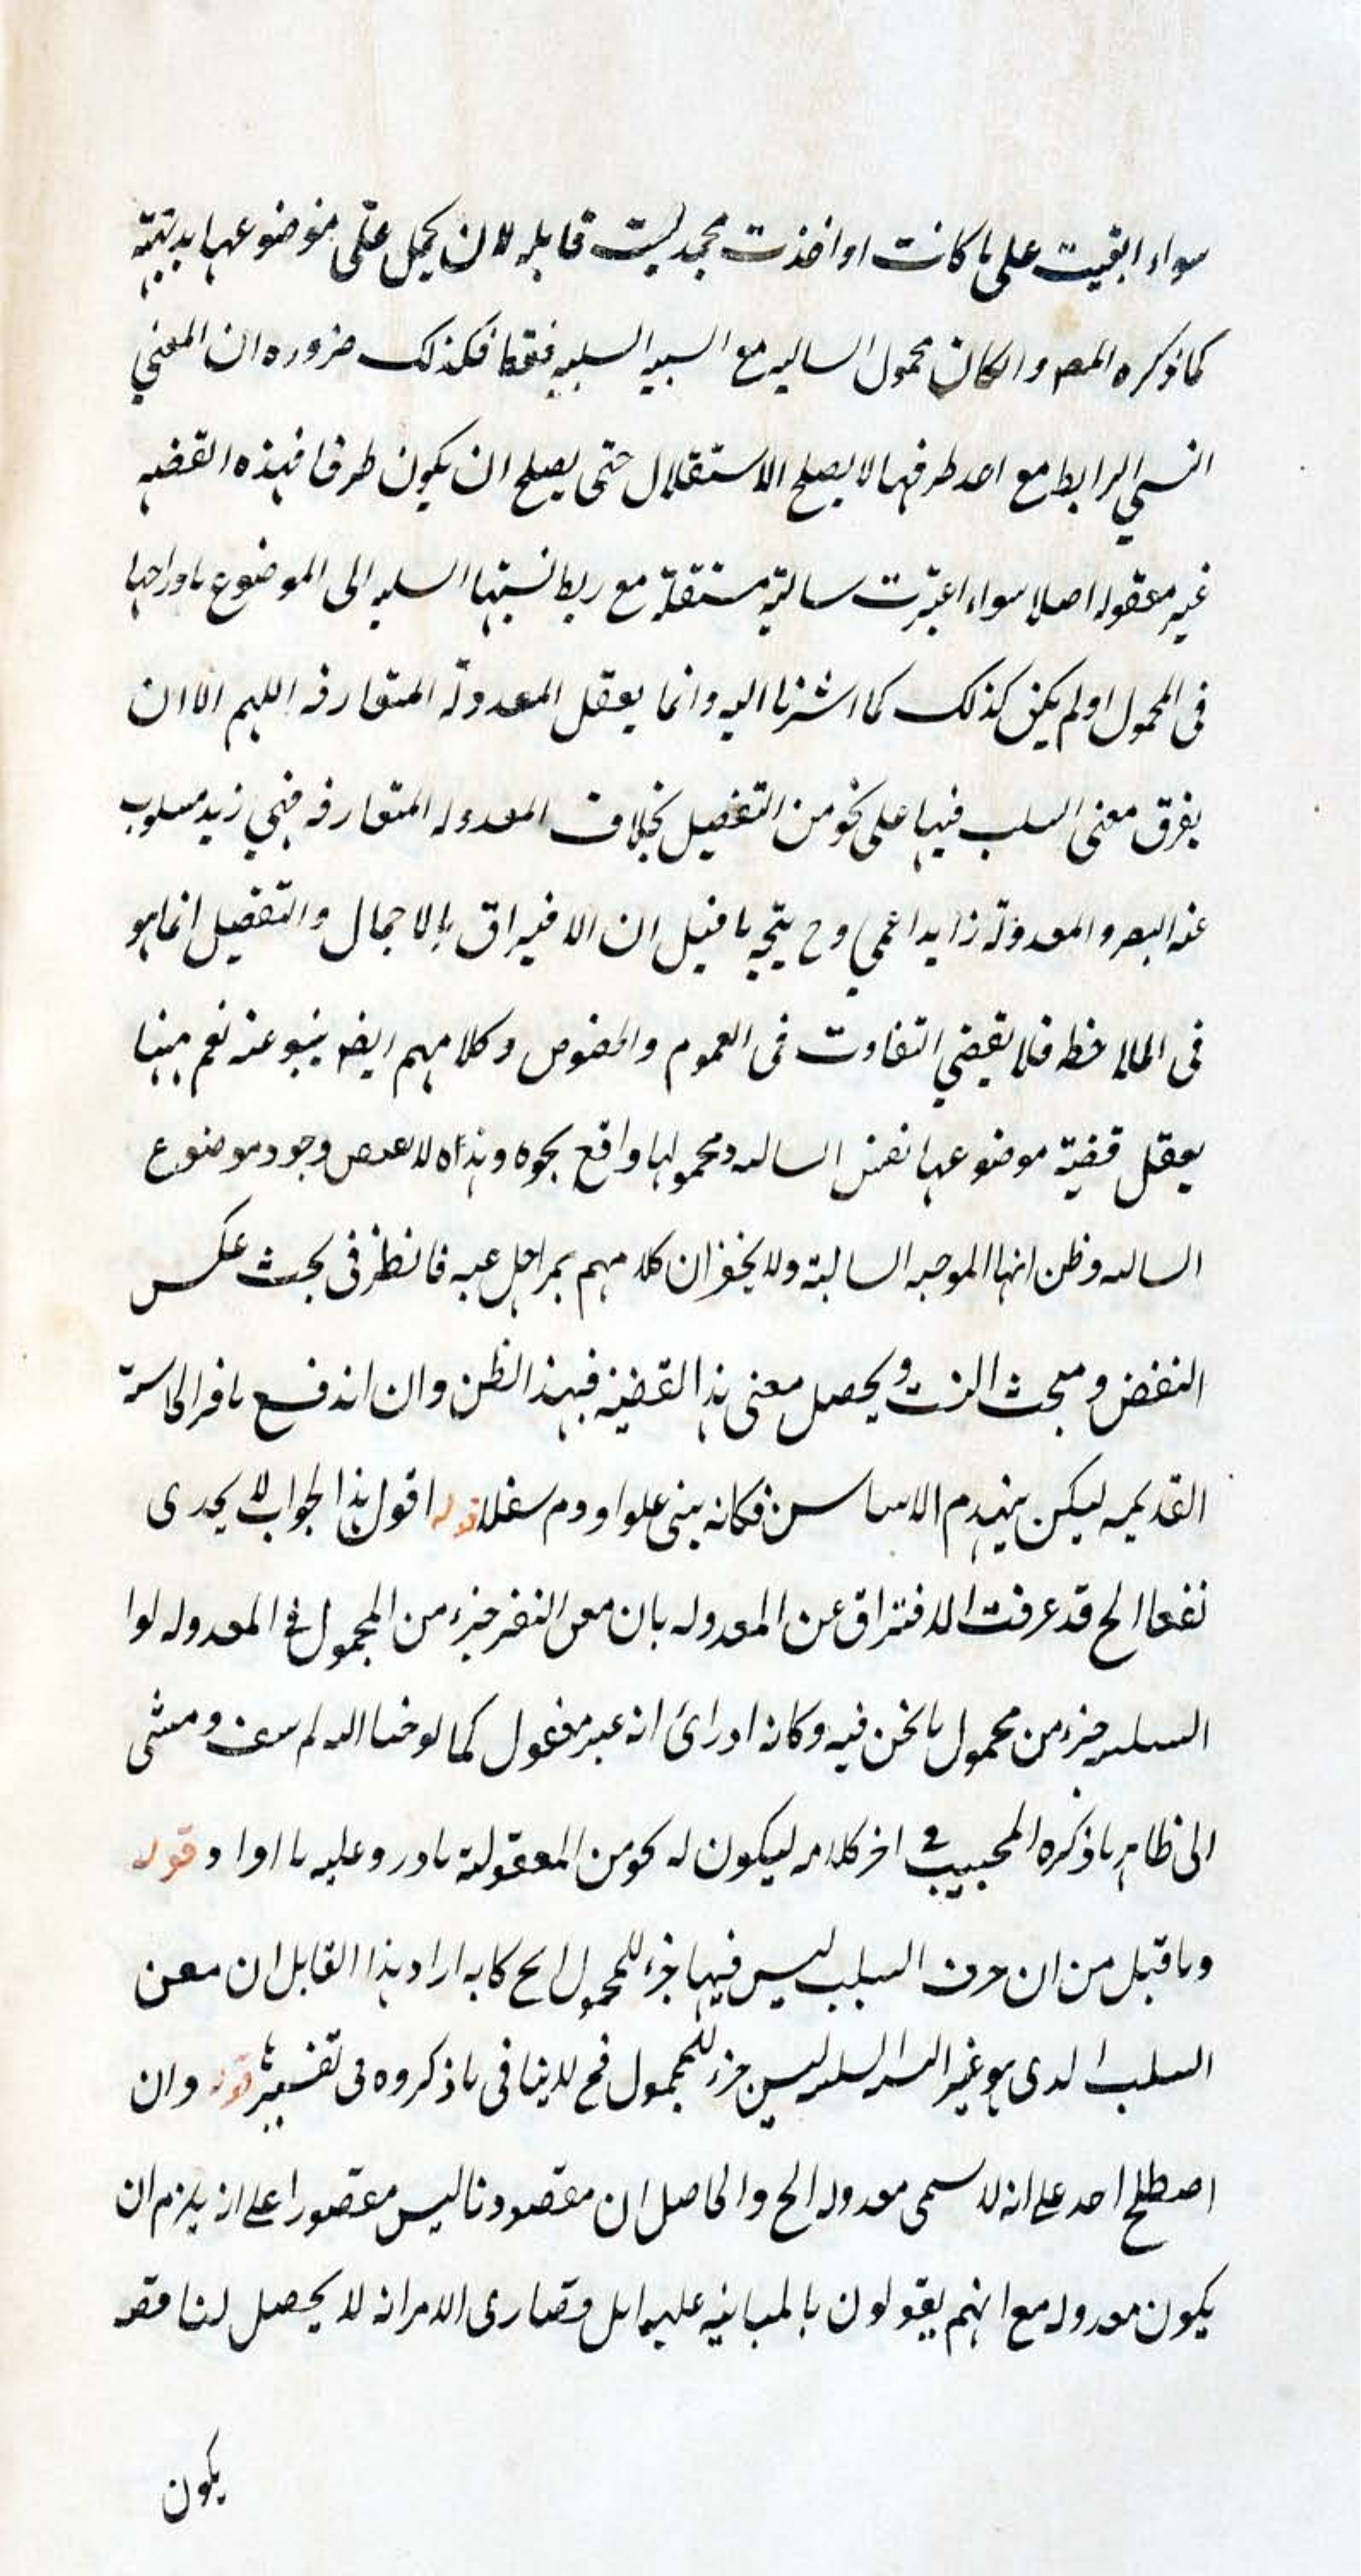 سواء ابقيت على ما كانت او اخذت مجمد ليست قابله لان يحمل على موضوعها بديتهته
كما ذكره المص وا لكان محمول السالبه مع السبيه السلبيه فقط فكذلك ضروره ان المعنى
النسبي الرابط مع احد طرفيها لا يصلح الاستقلال حتى يصلح ان يكون طرفا فهذه القضيه
غير معقوله اصلا سواء اعتبرت سالبة مستقلة مع ربط نسبتها السلبيه الى الموضوع
فى المحمول اولم يكن كذلك كما اشرنا اليه وانما يعقل المعدولة المتعارفه اللهم الا ان
يفرق معنى السلب فيها على نحو من التفصيل بخلاف المعدوله المتعارفه فهي زيد مسلوب
عنه البصر والمعدولة زايد اعمى وح يتجه ما قيل ان الافيراق بالاجمال والتفصيل انما هو
فى الملاحظه فلا يقضي التفاوت فى العموم والخصوص وكلامهم ايضه ينبو عنه نعم ههنا
يعقل قضية موضوعها نفس السالبه ومحمولها واقع بحوه وهذاه لا وجود موضوع
السالبه وظن انها الموجبه السالبة ولا يخفى ان كلامهم بمراحل عنه فانظر فى بحث عكس
النقض ومبحث النسب ويحصل معنى هذا القضية فهذا الظن وان اندفع
القديمه ليكن ينهدم الاساس فكانه بنى علوا وهدم سفلا قوله اقول هذا الجواب لا يجدى
نفعا الخ قد عرفت الافتراق عن المعدوله بان معنى النفى جزء من المحمول فى المعدوله لوا
السلبيه جزء من محمول ما نحن فيه وكانه اد راى انه غير معقول كما لوحنا اليه لم ومشى
الى ظاهر ما ذكره المجيب فى اخر كلامه ليكون له نحو من المعقولية عليه ما قوله
وما قيل من ان حرف السلب ليس فيها جزء للمحمول الخ كانه اراد هذا القايل ان معنى
السلب الذى هو غير السلبيه ليس جزء للمحمول فح لا ينافى ما ذكروه فى تفسيره قوله وان
اصطلح احد على انه لا سمى معدوله الخ والحاصل ان مقصودنا ليس مقصورا على انه يلزم ان
يكون معدوله مع انهم يقولون بالمباينه عليه قصارى الامر انه لا يحصل لنا
يكون